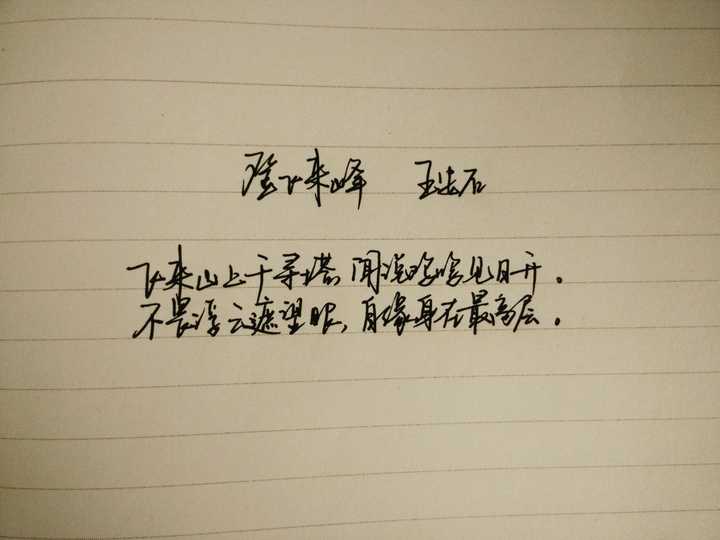 登飞来峰 王安石
飞来山上千寻塔，闻说见日升。
不畏浮云遮望眼，自缘身在最高层。